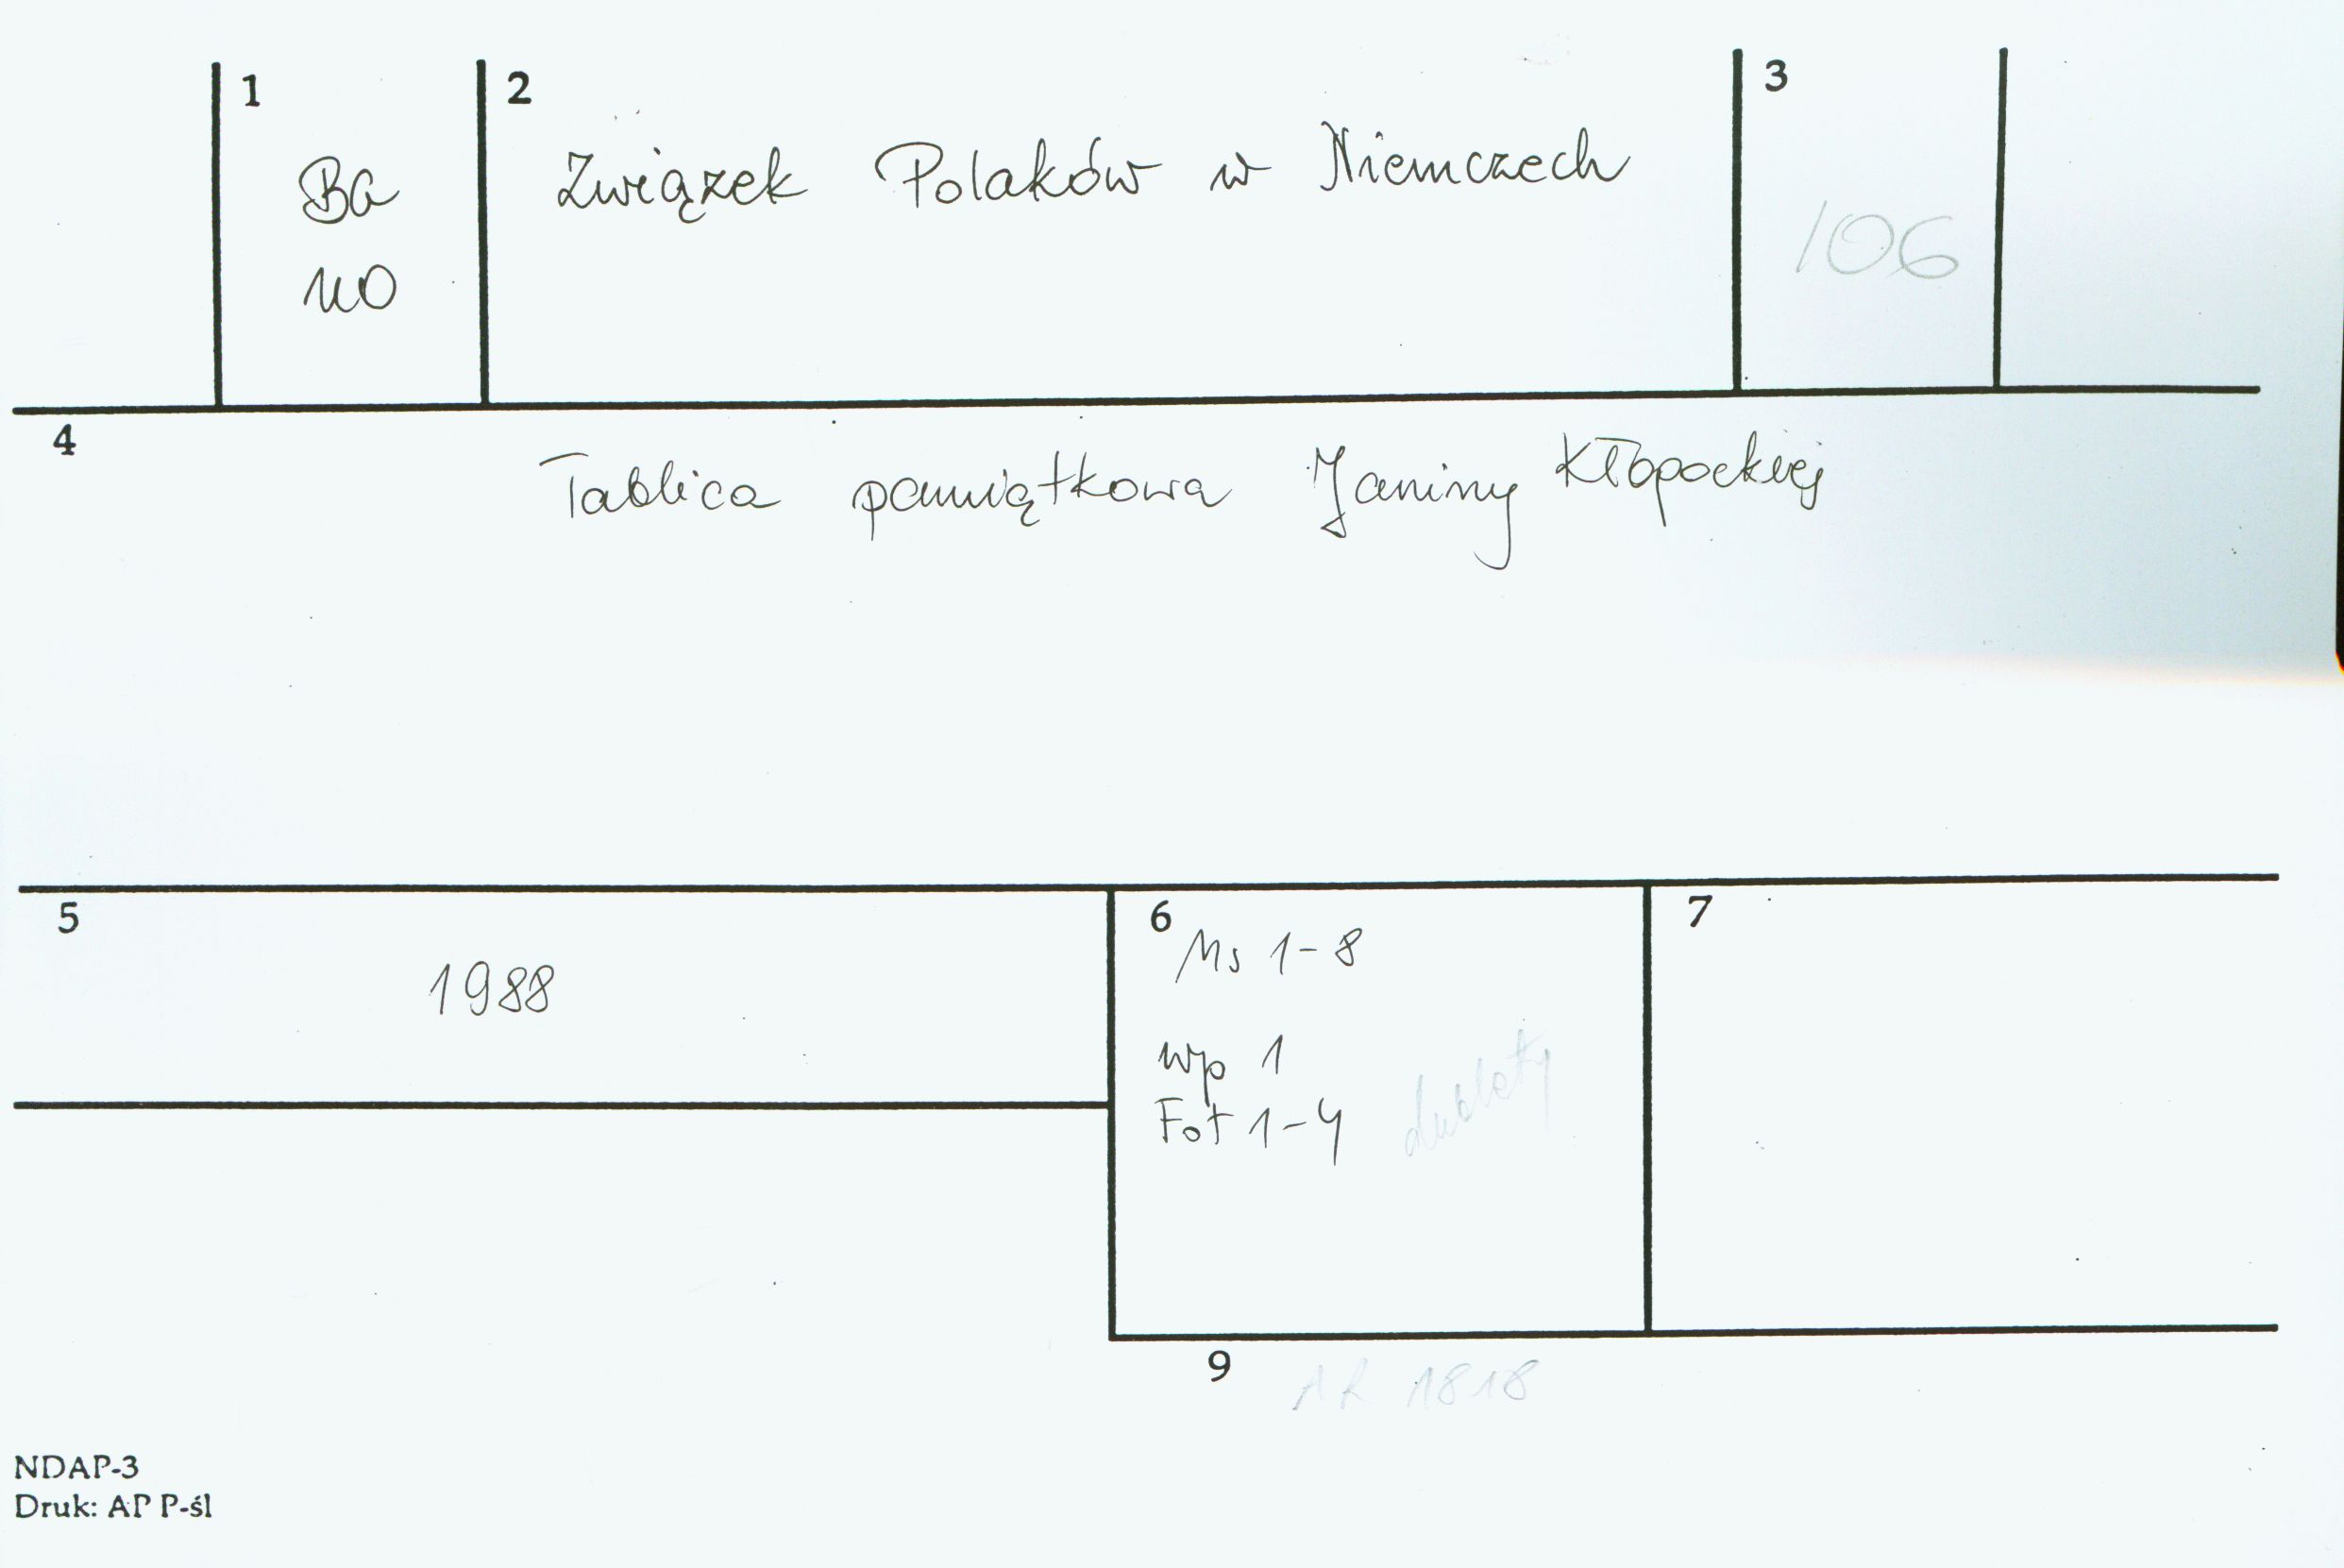 1
2
3
Ba
110
Związek Polaków w Niemczech
106
4
Tablica pamiątkowa Janiny Kłopockiej
5
6
7
1988
Ms 1-8
wp 1
Fot 1-4
dublety
9
AR 1818
NDAP-3
Druk: AP P-śl